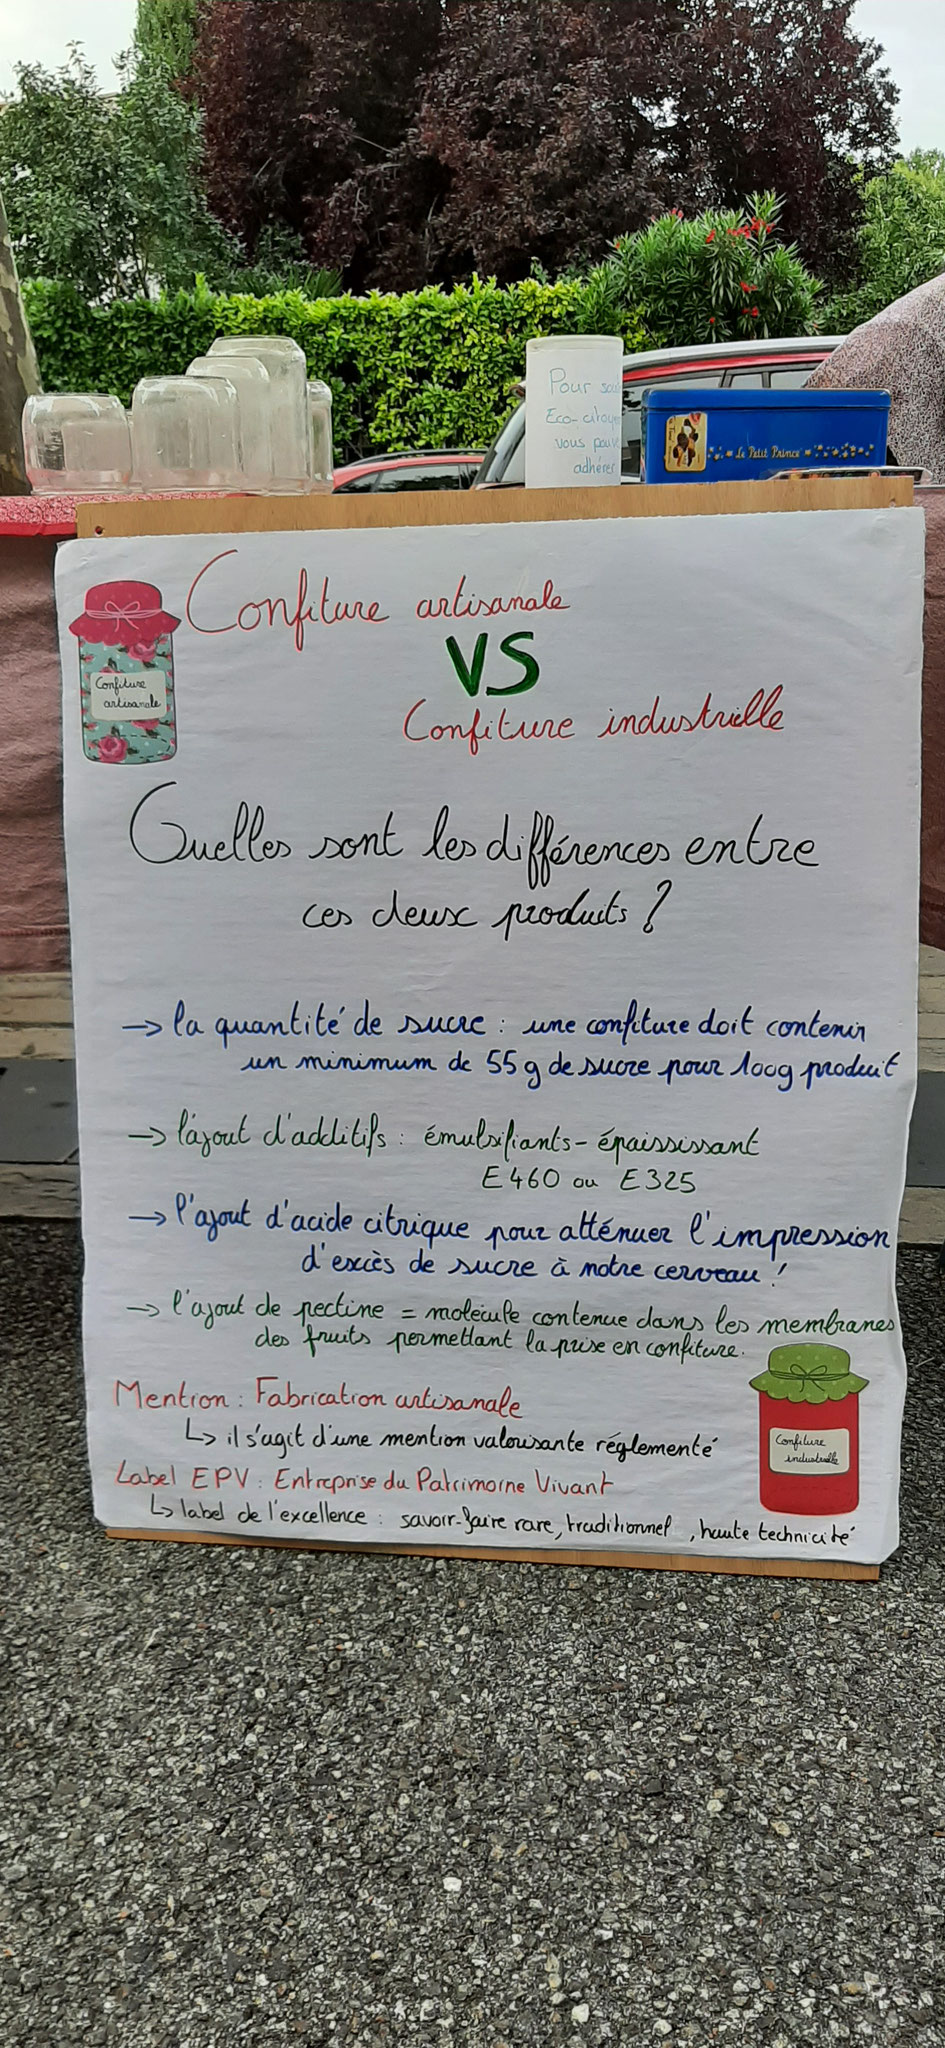 Pour sou
Eco-citoye
vous pouv
adhérer
Le Petit Prince
Confiture artisanale
VS
Confiture industrielle
Confiture
artisanale
Quelles sont les différences entre
ces deux produits ?
→ la quantité de sucre : une confiture doit contenir
un minimum de 55 g de sucre pour 100g produit
→ l'ajout d'additifs : émulsifiants - épaississant
E460 ou E325
→ l'ajout d'acide citrique pour atténuer l'impression
d'excès de sucre à notre cerveau !
→ l'ajout de pectine = molécule contenue dans les membranes
des fruits permettant la prise en confiture.
Mention : Fabrication artisanale
↳ il s'agit d'une mention valorisante réglementé
Label EPV : Entreprise du Patrimoine Vivant
↳ label de l'excellence : savoir-faire rare, traditionnel , haute technicité
Confiture
industrielle